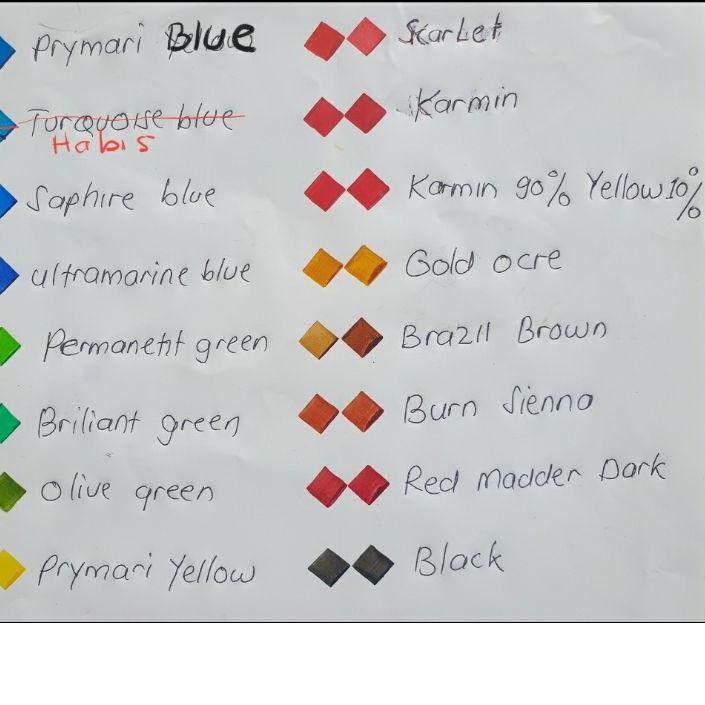 Prymari Blue
Turquoise blue
Habis
Saphire blue
ultramarine blue
Permanent green
Briliant green
Olive green
Prymari Yellow
Skarlet
Karmin
Karmin 90% Yellow 10%
Gold ocre
Brazil Brown
Burn Sienna
Red madder Dark
Black